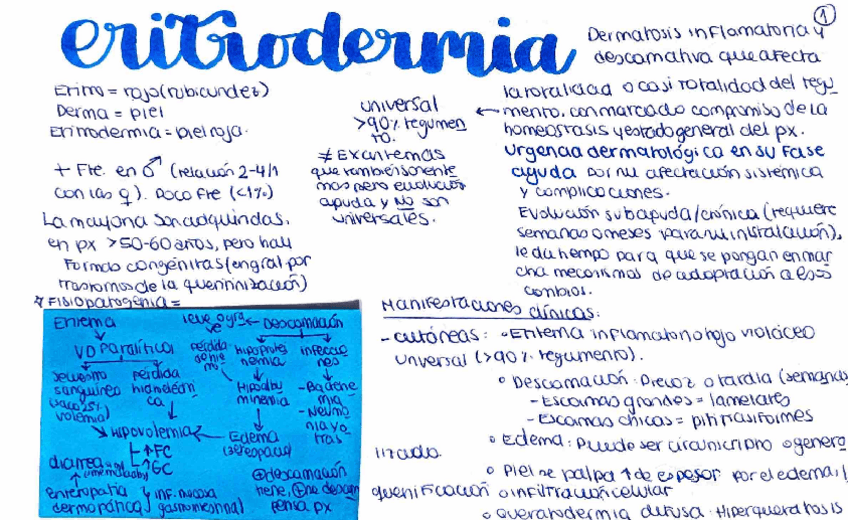 eritrodermia
1
Dermatosis inflamatoria y
descamativa que afecta
la totalidad o casi totalidad del regu-
mento. con marcado compromiso de la
homeostasis y estado general del px.
Urgencia dermatológica en su fase
aguda por su afectación sistémica
y complicaciones.
Evolución subaguda/crónica (requiere
semanas o meses para su instalación),
le da tiempo para que se pongan en mar
cha mecanismos de adaptación a esos
cambios.
Eritro = rojo (rubicundez)
Derma = piel
Eritrodermia = piel roja.
+ Fte. en ♂ (relación 2-4/1
con las ♀). Poco Fte (<1%)
La mayoria son adquiridas.
en px >50-60 años, pero hay
Formas congénitas (en gral por
trastornos de la queratinización)
universal
>90% tegumen
to.
≠ Exantemas
que también son te
mas pero evolución
aguda y NO son
universales.
* Fisiopatogenia =
Eritema
VD Paralítica
secuestro
sanguíneo
volemia)
pérdida
Hipovolemia
↑FC
↑GC
diarrea
enteropatía
dermopática
inf. mucosa
gastrointestinal
leve o gra
ve
Descamación
pérdida
de hie
rro
Hipoprote
nemia
infeccio
nes
Hipoalbu
minemia
- Bacterie
mia
- Neumo
nia y o
tras
Edema
⊕ descamación
tiene, ⊕
px
Manifestaciones clínicas:
- cutáneas: • Eritema inflamatorio rojo violáceo
universal (>90% tegumento).
• Descamación: Precoz o tardía (semanas
- Escamas grandes = lamelares
- Escamas chicas = pitiriasiformes
• Edema: Puede ser circunscripto o genera
lizado.
• Piel se palpa ↑ de espesor por el edema, l
quenificación o infiltración celular
• Queratodermia difusa: Hiperqueratosis